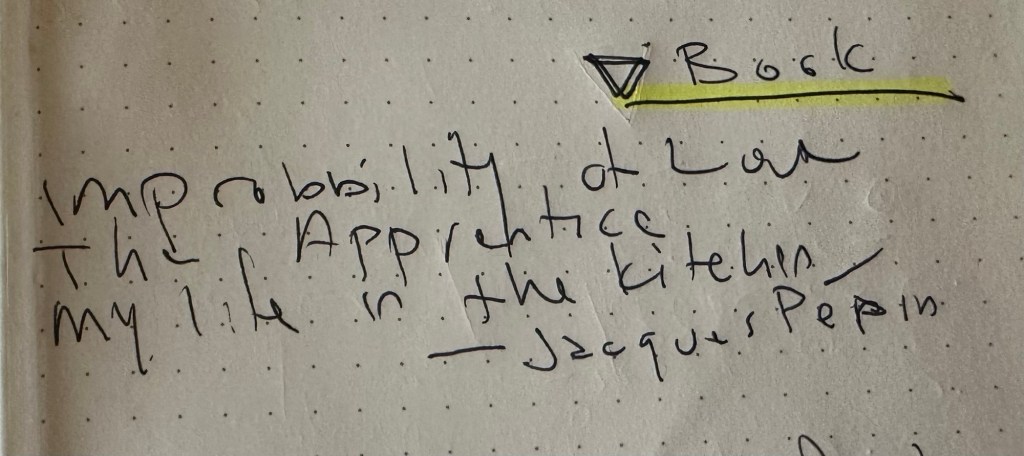 Book
Improbbility of Love
The Apprentice
my life in the kitchen
— Jacques Pépin